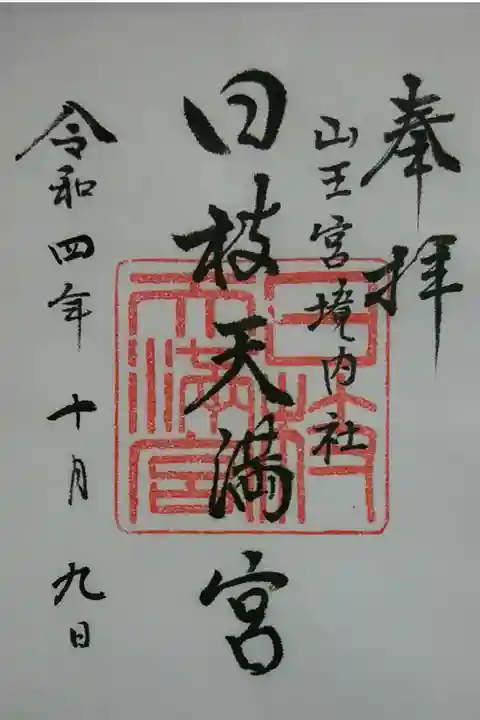 奉拝
山王宮境内社
日枝天満宮
令和四年十月九日
日枝天満宮